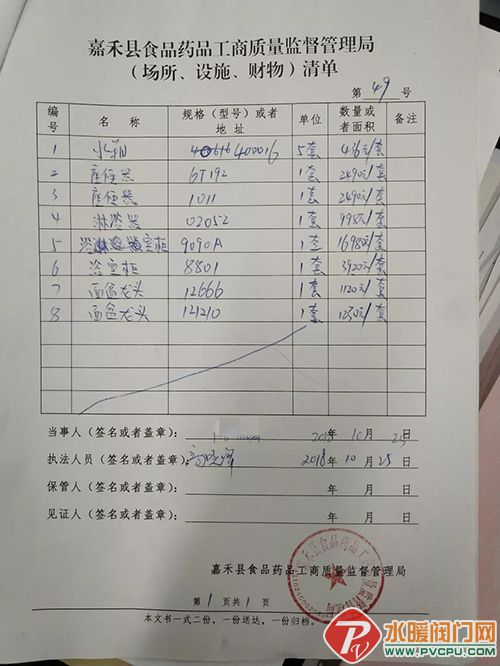 嘉禾县食品药品工商质量监督管理局
（场所、设施、财物）清单
第 49 号
编号 名称 规格（型号）或者地址 单位 数量或者面积 备注
1 水箱 40016 5套 436元/套
2 座便器 GT192 1套 2490元/套
3 座便器 1011 1套 2490元/套
4 淋浴器 02052 1套 998元/套
5 浴室柜 9090A 1套 1698元/套
6 浴室柜 8801 1套 3920元/套
7 面盆龙头 12666 1套 1120元/套
8 面盆龙头 121210 1套 1230元/套
当事人（签名或者盖章）： 2018年 10 月 25 日
执法人员（签名或者盖章）： 2018 年 10 月 25 日
保管人（签名或者盖章）： 年 月 日
见证人（签名或者盖章）： 年 月 日
嘉禾县食品药品工商质量监督管理局
第 1 页共 1 页
本文书一式二份，一份送达，一份归档。
水暖阀门网
WWW.PVCPU.COM